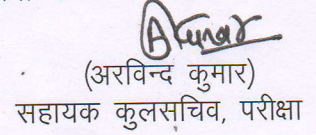 A Kumar
(अरविन्द कुमार)
सहायक कुलसचिव, परीक्षा